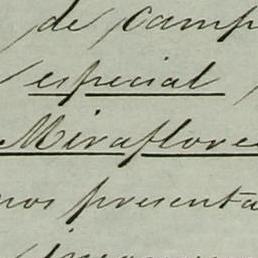 de camp
especial
Miraflores
nos presenta